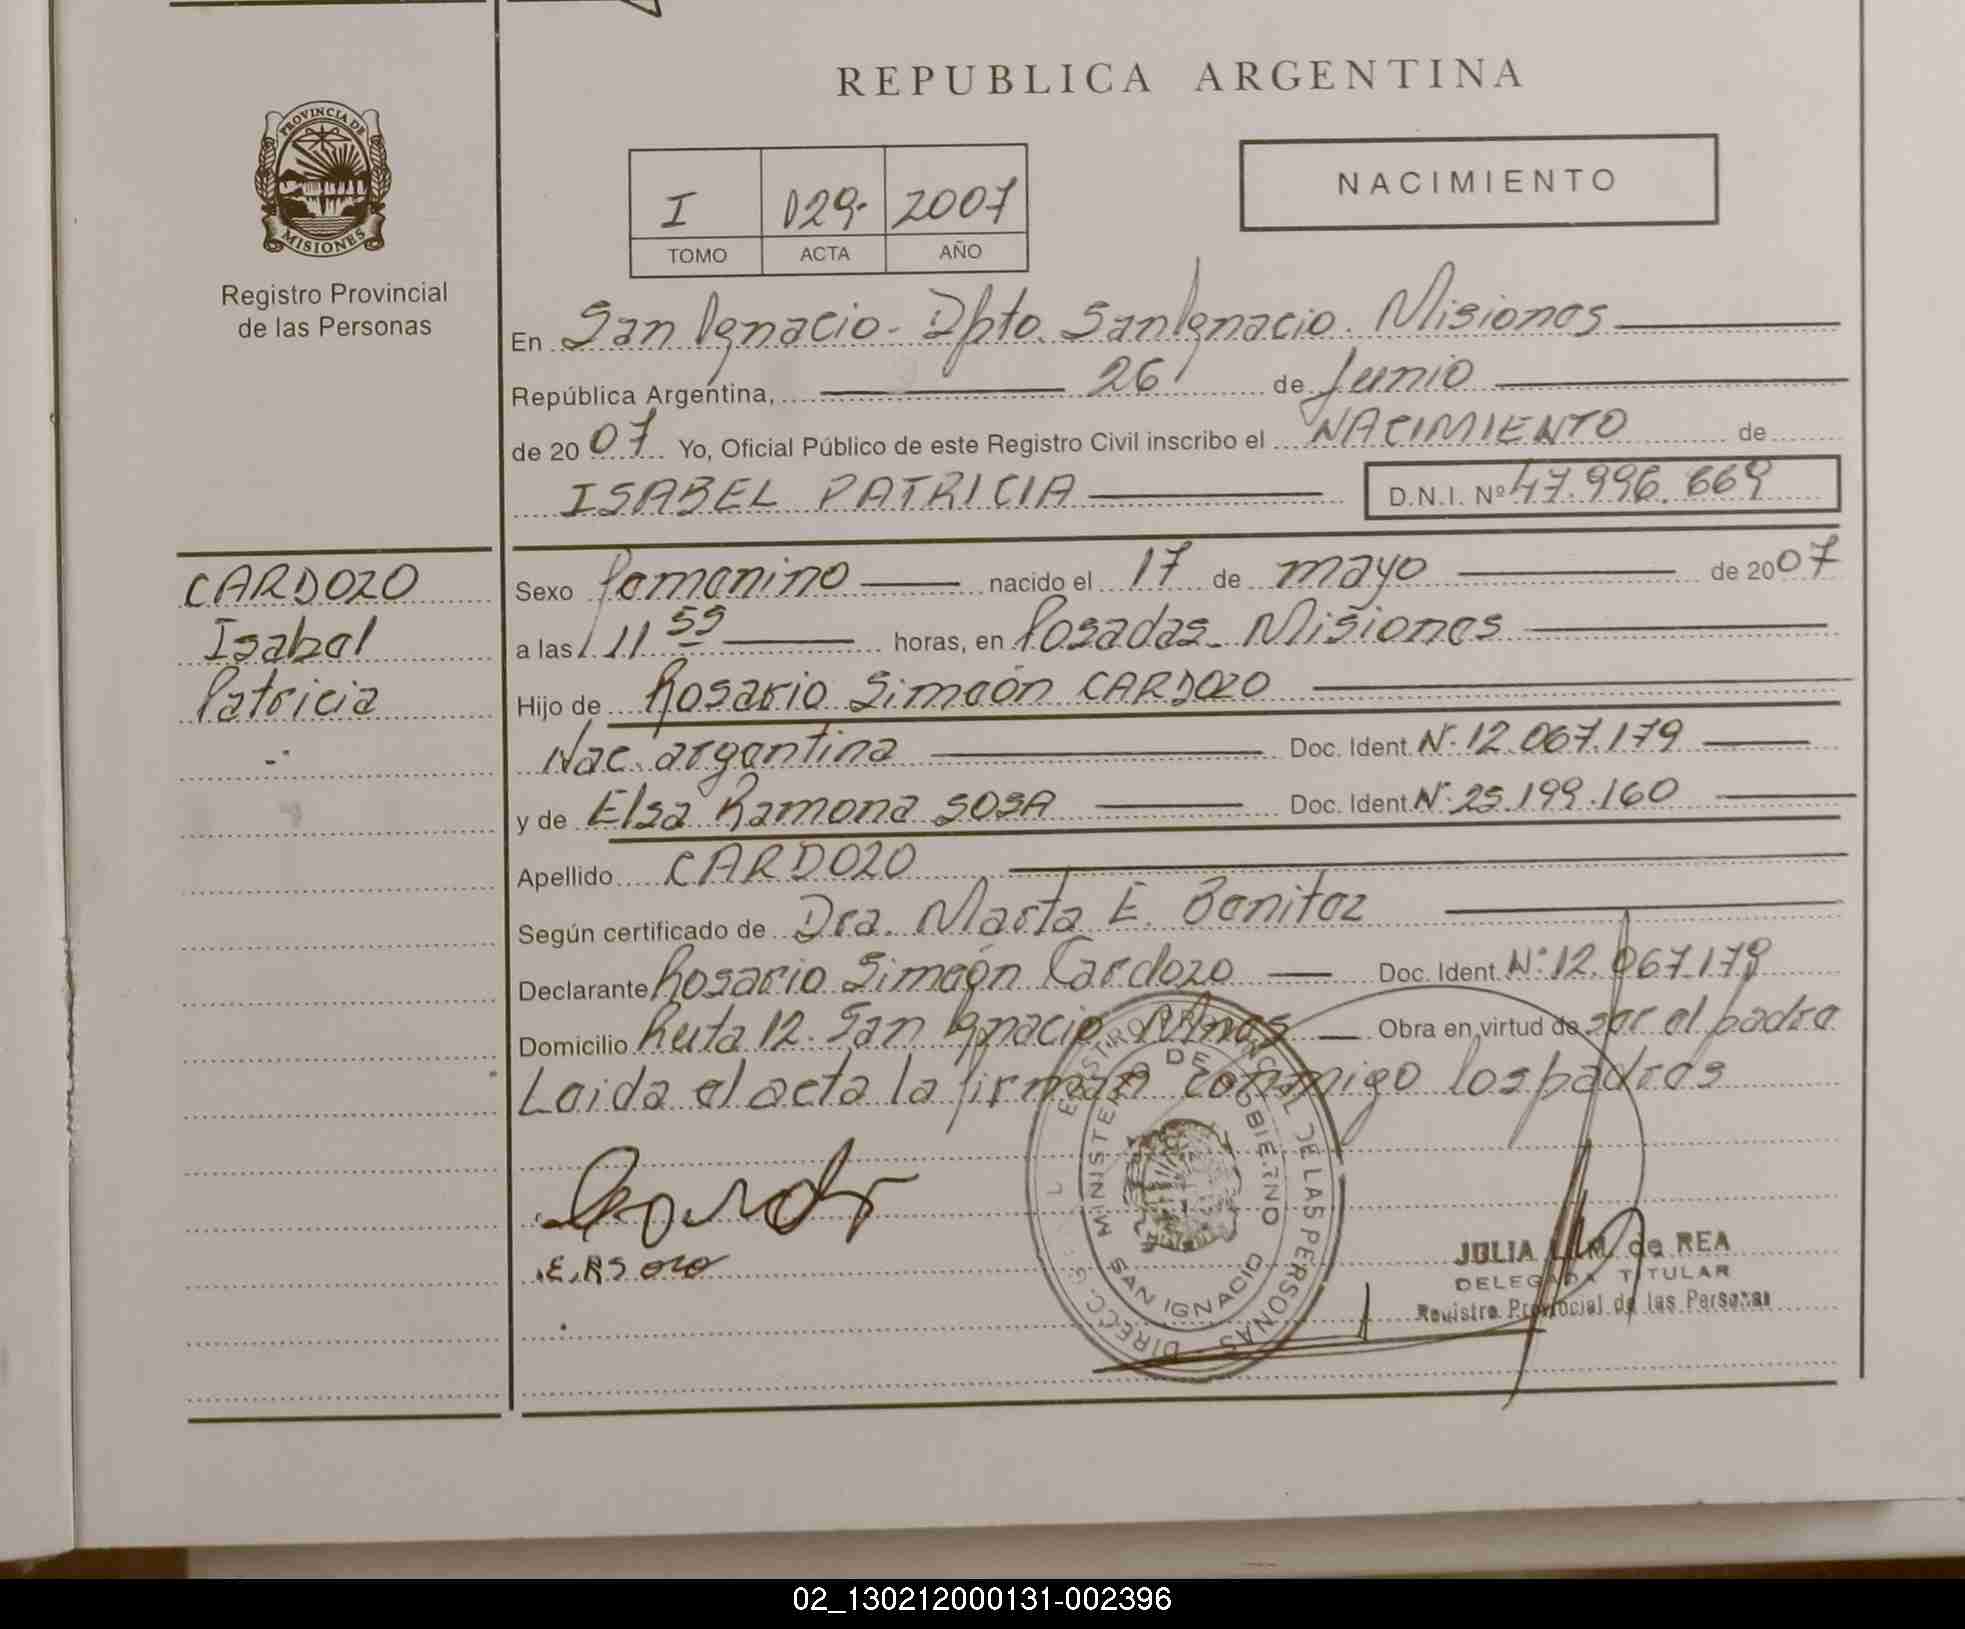 REPUBLICA ARGENTINA
PROVINCIA DE
MISIONES
Registro Provincial
de las Personas
I 129- 2007
TOMO ACTA AÑO
NACIMIENTO
En San Ignacio - Dpto. San Ignacio. Misiones
República Argentina, 26 de Junio
de 2007 Yo, Oficial Público de este Registro Civil inscribo el NACIMIENTO de
ISABEL PATRICIA D.N.I. Nº 47.996.669
CARDOZO
Isabel
Patricia
Sexo femenino nacido el 17 de mayo de 2007
a las 11 55 horas, en Posadas - Misiones
Hijo de Rosario Simeón CARDOZO
Nac. argentina Doc. Ident. Nº 12.067.179
y de Elsa Ramona SOSA Doc. Ident. Nº 25.199.160
Apellido CARDOZO
Según certificado de Dra. Marta E. Benitez
Declarante Rosario Simeón Cardozo Doc. Ident. Nº 12.067.179
Domicilio Ruta 12 - San Ignacio Mnes Obra en virtud de ser el padre
Leida el acta la firman conmigo los padres
MINISTERIO DE GOBIERNO
SAN IGNACIO
DE LAS PERSONAS
JULIA de REA
DELEGADA TITULAR
Registro Provincial de las Personas
02_130212000131-002396